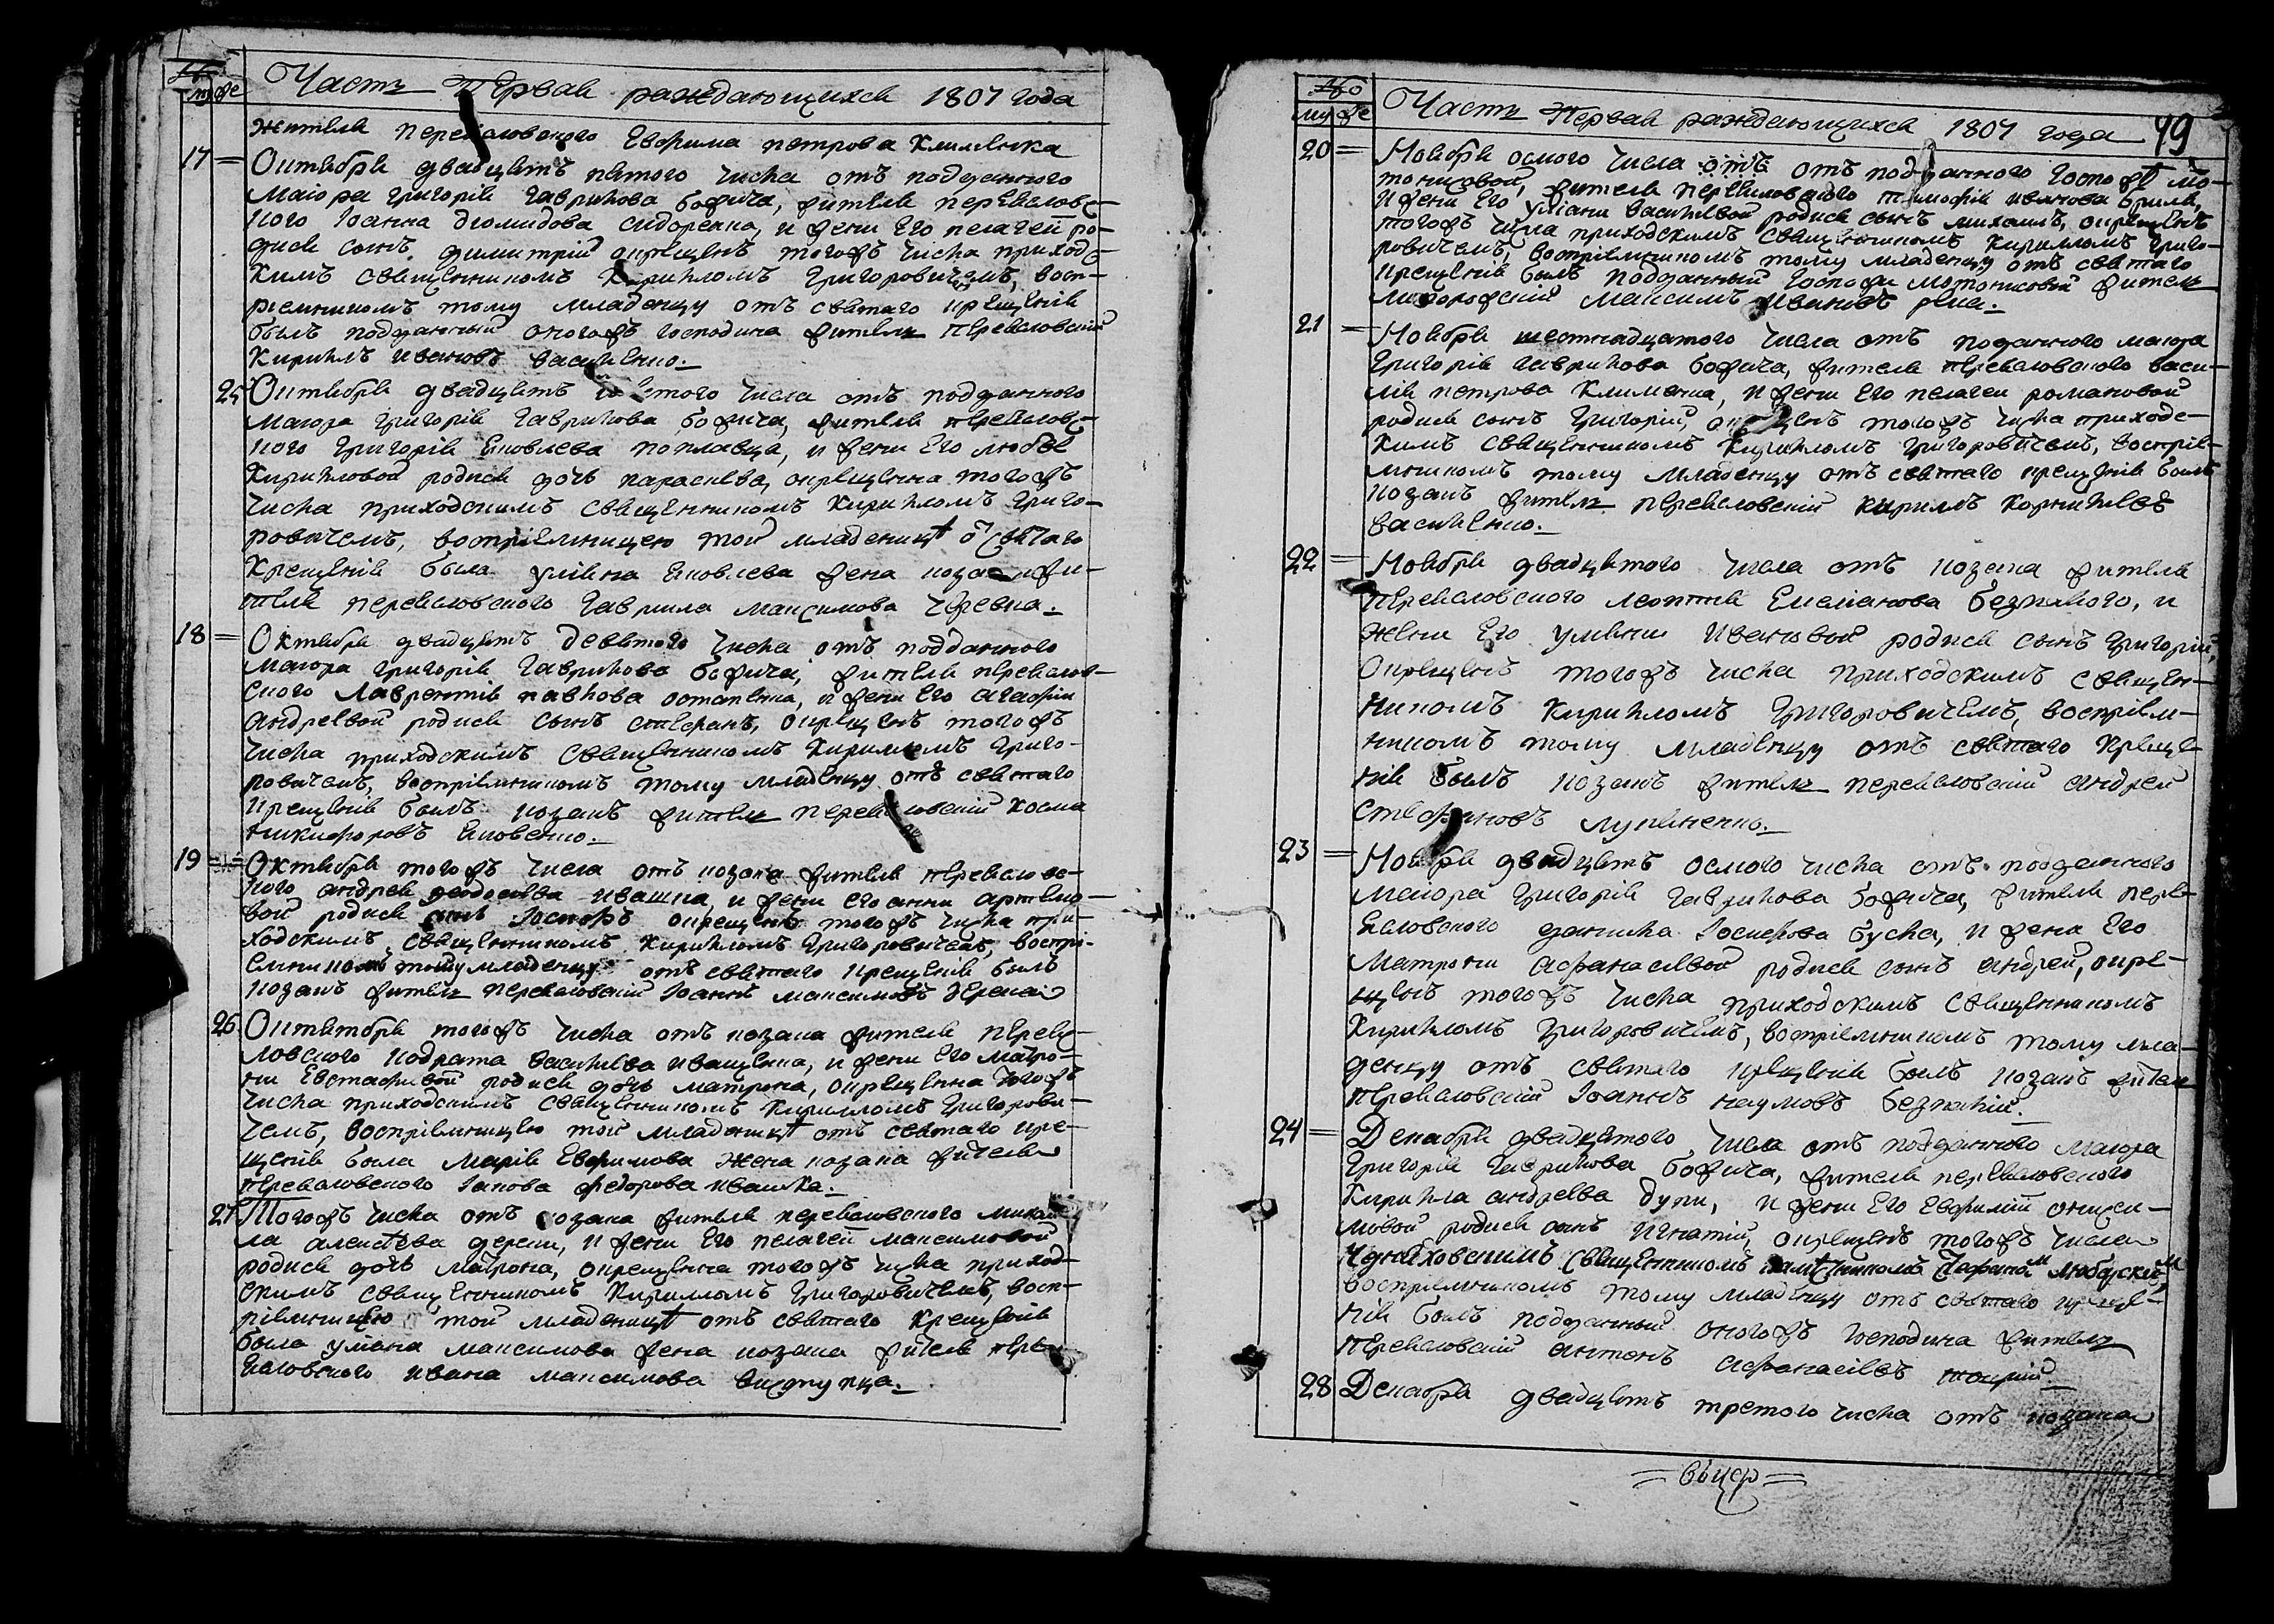 №
му же
Часть Первая раждающихся 1807 года
жителя переяловского Евфима петрова Клименка
17 = Октября двадцять пятого числа отъ подданного
маіора григорія гаврилова божича, жителя переяловс-
кого Іоанна диомидова сидоренка, и жени его пелагеи ро-
дися сынъ димитрій окрещенъ тогожъ числа приходс-
кимъ священникомъ Кирилломъ григоровичемъ, восп-
ріемникомъ тому младенцу отъ святаго крещенія
былъ подданный оногожъ господина житель переяловскій
Кирилъ ивановъ василенко.
25 Октября двадцять числа отъ подданного
маіора григорія гаврилова божича, жителя переяловс-
кого григорія Яковлева поплавца, и жени его любве
Кириловой родися дочь параскева, окрещенна тогожъ
числа приходскимъ священникомъ Кирилломъ григо-
ровичемъ, воспріемницею той младеницѣ ѿ святаго
Крещенія была уліяна Яковлева жена козака жи-
теля переяловского гавриила максимова
18 = Октября двадцять девятого числа отъ подданного
маіора григорія гаврилова божича, жителя переялов-
ского лаврентія павлова остапенка, и жени его агафіи
андреевой родися сынъ стефанъ, окрещенъ тогожъ
числа приходскимъ священникомъ Кирилломъ григо-
ровичемъ, воспріемникомъ тому младенцу отъ святаго
крещенія былъ козакъ житель переяловскій косма
никифоровъ Яковенко.
19 = Октября тогожъ числа отъ козака жителя переяловс-
кого андрея феодосіева ивашка, и жени его анни артемо-
вой родися сынъ Іосифъ окрещенъ тогожъ числа при-
ходскимъ священникомъ Кирилломъ григоровичемъ, воспрі-
емникомъ тому младенцу отъ святаго крещенія былъ
козакъ житель переяловскій Іоаннъ максимовъ
26 Октября тогожъ числа отъ козака жителя переяс-
ловского кодрата василіева иващенка, и жени его матро-
ни Евстафіевой родися дочь матрона, окрещенна тогожъ
числа приходскимъ священникомъ Кирилломъ григорови-
чемъ, воспріемницею той младеницѣ отъ святаго кре-
щенія была Марія Евфимова жена козака жителя
переяловского Іакова федорова ивашка.
27 Тогожъ числа отъ козака жителя переяловского михаи-
ла алексѣева и жени его пелагеи максимовой
родися дочь матрона, окрещенна тогожъ числа приход-
скимъ священникомъ Кирилломъ григоровичемъ, восп-
ріемницею той младеницѣ отъ святаго крещенія
была уліяна максимова жена козака жителя пере-
яловского ивана максимова
№
му же
Часть Первая раждающихся 1807 года 49
20 = Ноября осмого числа отъ подданного госпожѣ мо-
тонисовой, жителя переяловского тимофія иванова
и жени его уліани васильевой родися сынъ михаилъ, окрещенъ
тогожъ числа приходскимъ священникомъ Кирилломъ григо-
ровичемъ, воспріемникомъ тому младенцу отъ святаго
крещенія былъ подданный госпожи мотонисовой житель
максимъ ивановъ
21 = Ноября шестнадцатого числа отъ поданного маіора
григорія гаврилова божича, жителя переяловского васи-
лія петрова Клименка, и жени его пелагеи романовой
родися сынъ григорій, окрещенъ тогожъ числа приходс-
кимъ священникомъ Кирилломъ григоровичемъ, воспріе-
мникомъ тому младенцу отъ святаго крещенія былъ
козакъ житель переяловскій Кирилъ Корниліевъ
василенко.
22 = Ноября двадцятого числа отъ козака жителя
переяловского леонтія Емеліанова безпалого, и
жени его уліяни ивановой родися сынъ григорій,
Окрещенъ тогожъ числа приходскимъ священ-
никомъ Кирилломъ григоровичемъ, воспріем-
никомъ тому младенцу отъ святаго креще-
нія былъ козакъ житель переяловскій андрей
стефановъ
23 = Ноября двадцять осмого числа отъ подданного
маіора григорія гаврилова божича, жителя пере-
яловского данила Іосифова буска, и жена его
матрони афанасіевой родися сынъ андрей, окре-
щенъ тогожъ числа приходскимъ священникомъ
Кирилломъ григоровичемъ, воспріемникомъ тому мла-
денцу отъ святаго крещенія былъ козакъ житель
переяловскій Іоаннъ наумовъ безпалій.
24 = Декабря двадцятого числа отъ подданного маіора
григорія гаврилова божича, жителя переяловского
Кирилла андреева дупи, и жени его Евфиміи
мовой родися сынъ игнатій, окрещенъ тогожъ числа
священникомъ намѣстникомъ
воспріемникомъ тому младенцу отъ святаго креще-
нія былъ подданный оногожъ господина житель
переяловскій антонъ афанасіевъ
28 Декабря двадцять третого числа отъ козака